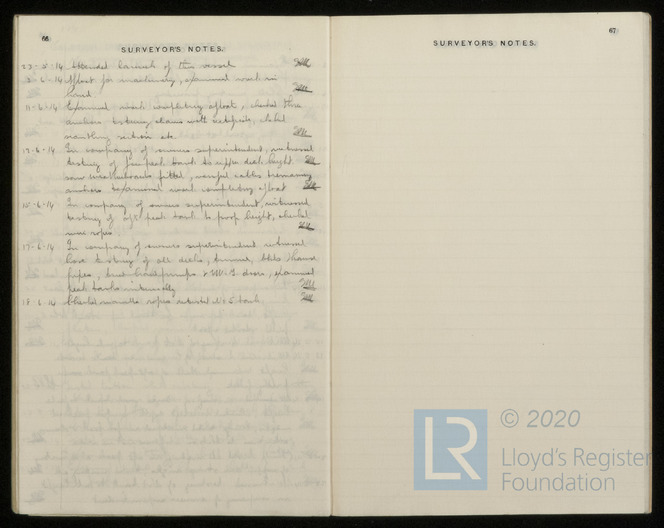 66
SURVEYOR'S NOTES.
23-5-14 Attended launch of this vessel
3-6-14 Afloat for machinery, examined work in
hand.
11-6-14 Examined work completing afloat, checked three
anchors & string chains with certificates, checked
scantling sections etc.
12-6-14 In company of owners superintendent, witnessed
testing of fore peak tank to upper deck height.
saw weatherboards fitted, verified cables & remaining
anchors & examined work completing afloat
15-6-14 In company of owners superintendent, witnessed
testing of aft peak tank to proof height, checked
wire ropes.
17-6-14 In company of owners superintendent witnessed
hose testing of all decks, & hawse
pipes, tried hand pumps & W.T. doors, examined
peak tanks internally
18-6-14 Checked manilla ropes, retested No 5 tank.
67
SURVEYOR'S NOTES.
LR © 2020
Lloyd's Register
Foundation